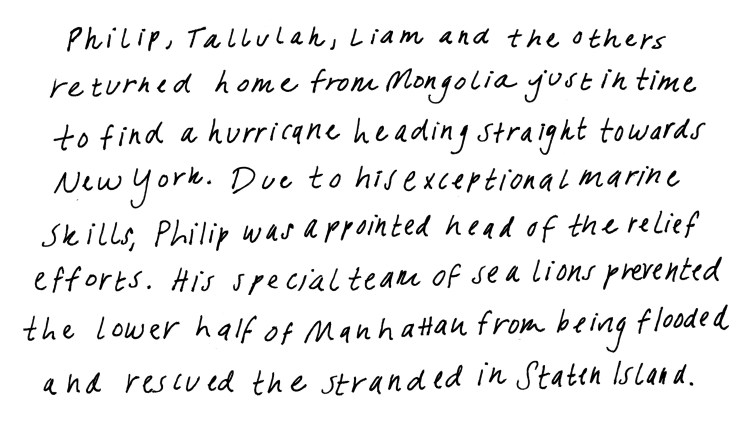 Philip, Tallulah, Liam and the others
returned home from Mongolia just in time
to find a hurricane heading straight towards
New York. Due to his exceptional marine
skills, Philip was appointed head of the relief
efforts. His special team of sea lions prevented
the lower half of Manhattan from being flooded
and rescued the stranded in Staten Island.